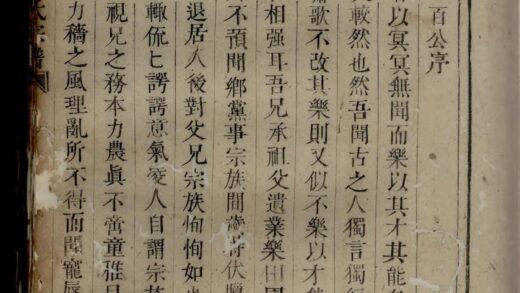 百公序
者以冥冥無聞而樂以其才其能
大較然也然吾聞古之人獨言獨
歌不改其樂則又似不樂以才
相强耳吾兄承祖父遺業樂田
不預聞鄉黨事宗族間歲時伏臘
退居人後對父兄宗族恂恂如
輙侃匕諤諤意氣凌人自謂宗
視兄之務本力農眞不啻童雅
力穡之風理亂所不得而聞寵辱
氏宗譜